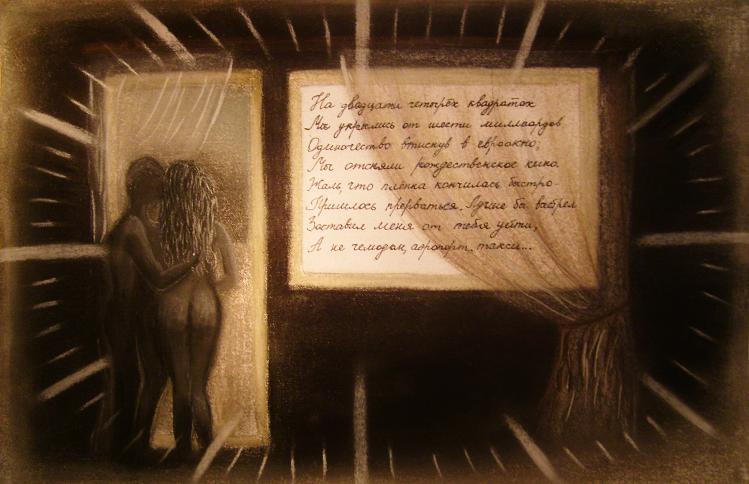 На двадцати четырёх квадратах
Мы укрылись от шести миллиардов
Одиночество втиснув в евроокно;
Мы отсняли рождественское кино.
Жаль, что плёнка кончилась быстро
Пришлось прерваться. Лучше бы выстрел
Заставил меня от тебя уйти,
А не чемодан, аэропорт, такси...